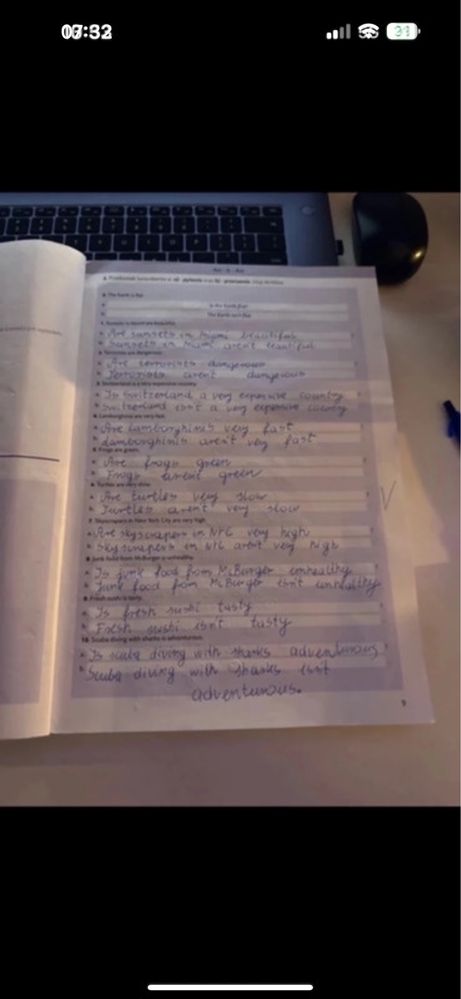 33
Am - is - Are
0 The Earth is flat.
a. Is the Earth flat?
b. The Earth isn't flat.
1. Sunsets in Miami are beautiful.
a. Are sunsets in Miami beautiful ?
b. Sunsets in Miami aren't beautiful
2. Terrorists are dangerous.
a. Are terrorists dangerous ?
b. Terrorists arent dangerous
3. Switzerland is a very expensive country.
a. Is Switzerland a very expensive country ?
b. Switzerland isn't a very expensive country
4. Lamborghinis are very fast.
a. Are Lamborghinis very fast ?
b. Lamborghinis aren't very fast
5. Frogs are green.
a. Are frogs green ?
b. Frogs aren't green
6. Turtles are very slow.
a. Are turtles very slow ?
b. Turtles aren't very slow
7. Skyscrapers in New York City are very high.
a. Are skyscrapers in NYC very high ?
b. Skyscrapers in NYC aren't very high
8. Junk food from McBurger is unhealthy.
a. Is junk food from McBurger unhealthy ?
b. Junk food from McBurger isn't unhealthy
9. Fresh sushi is tasty.
a. Is fresh sushi tasty ?
b. Fresh sushi isn't tasty
10. Scuba diving with sharks is adventurous.
a. Is scuba diving with sharks adventurous ?
b. Scuba diving with sharks isn't
adventurous.
9